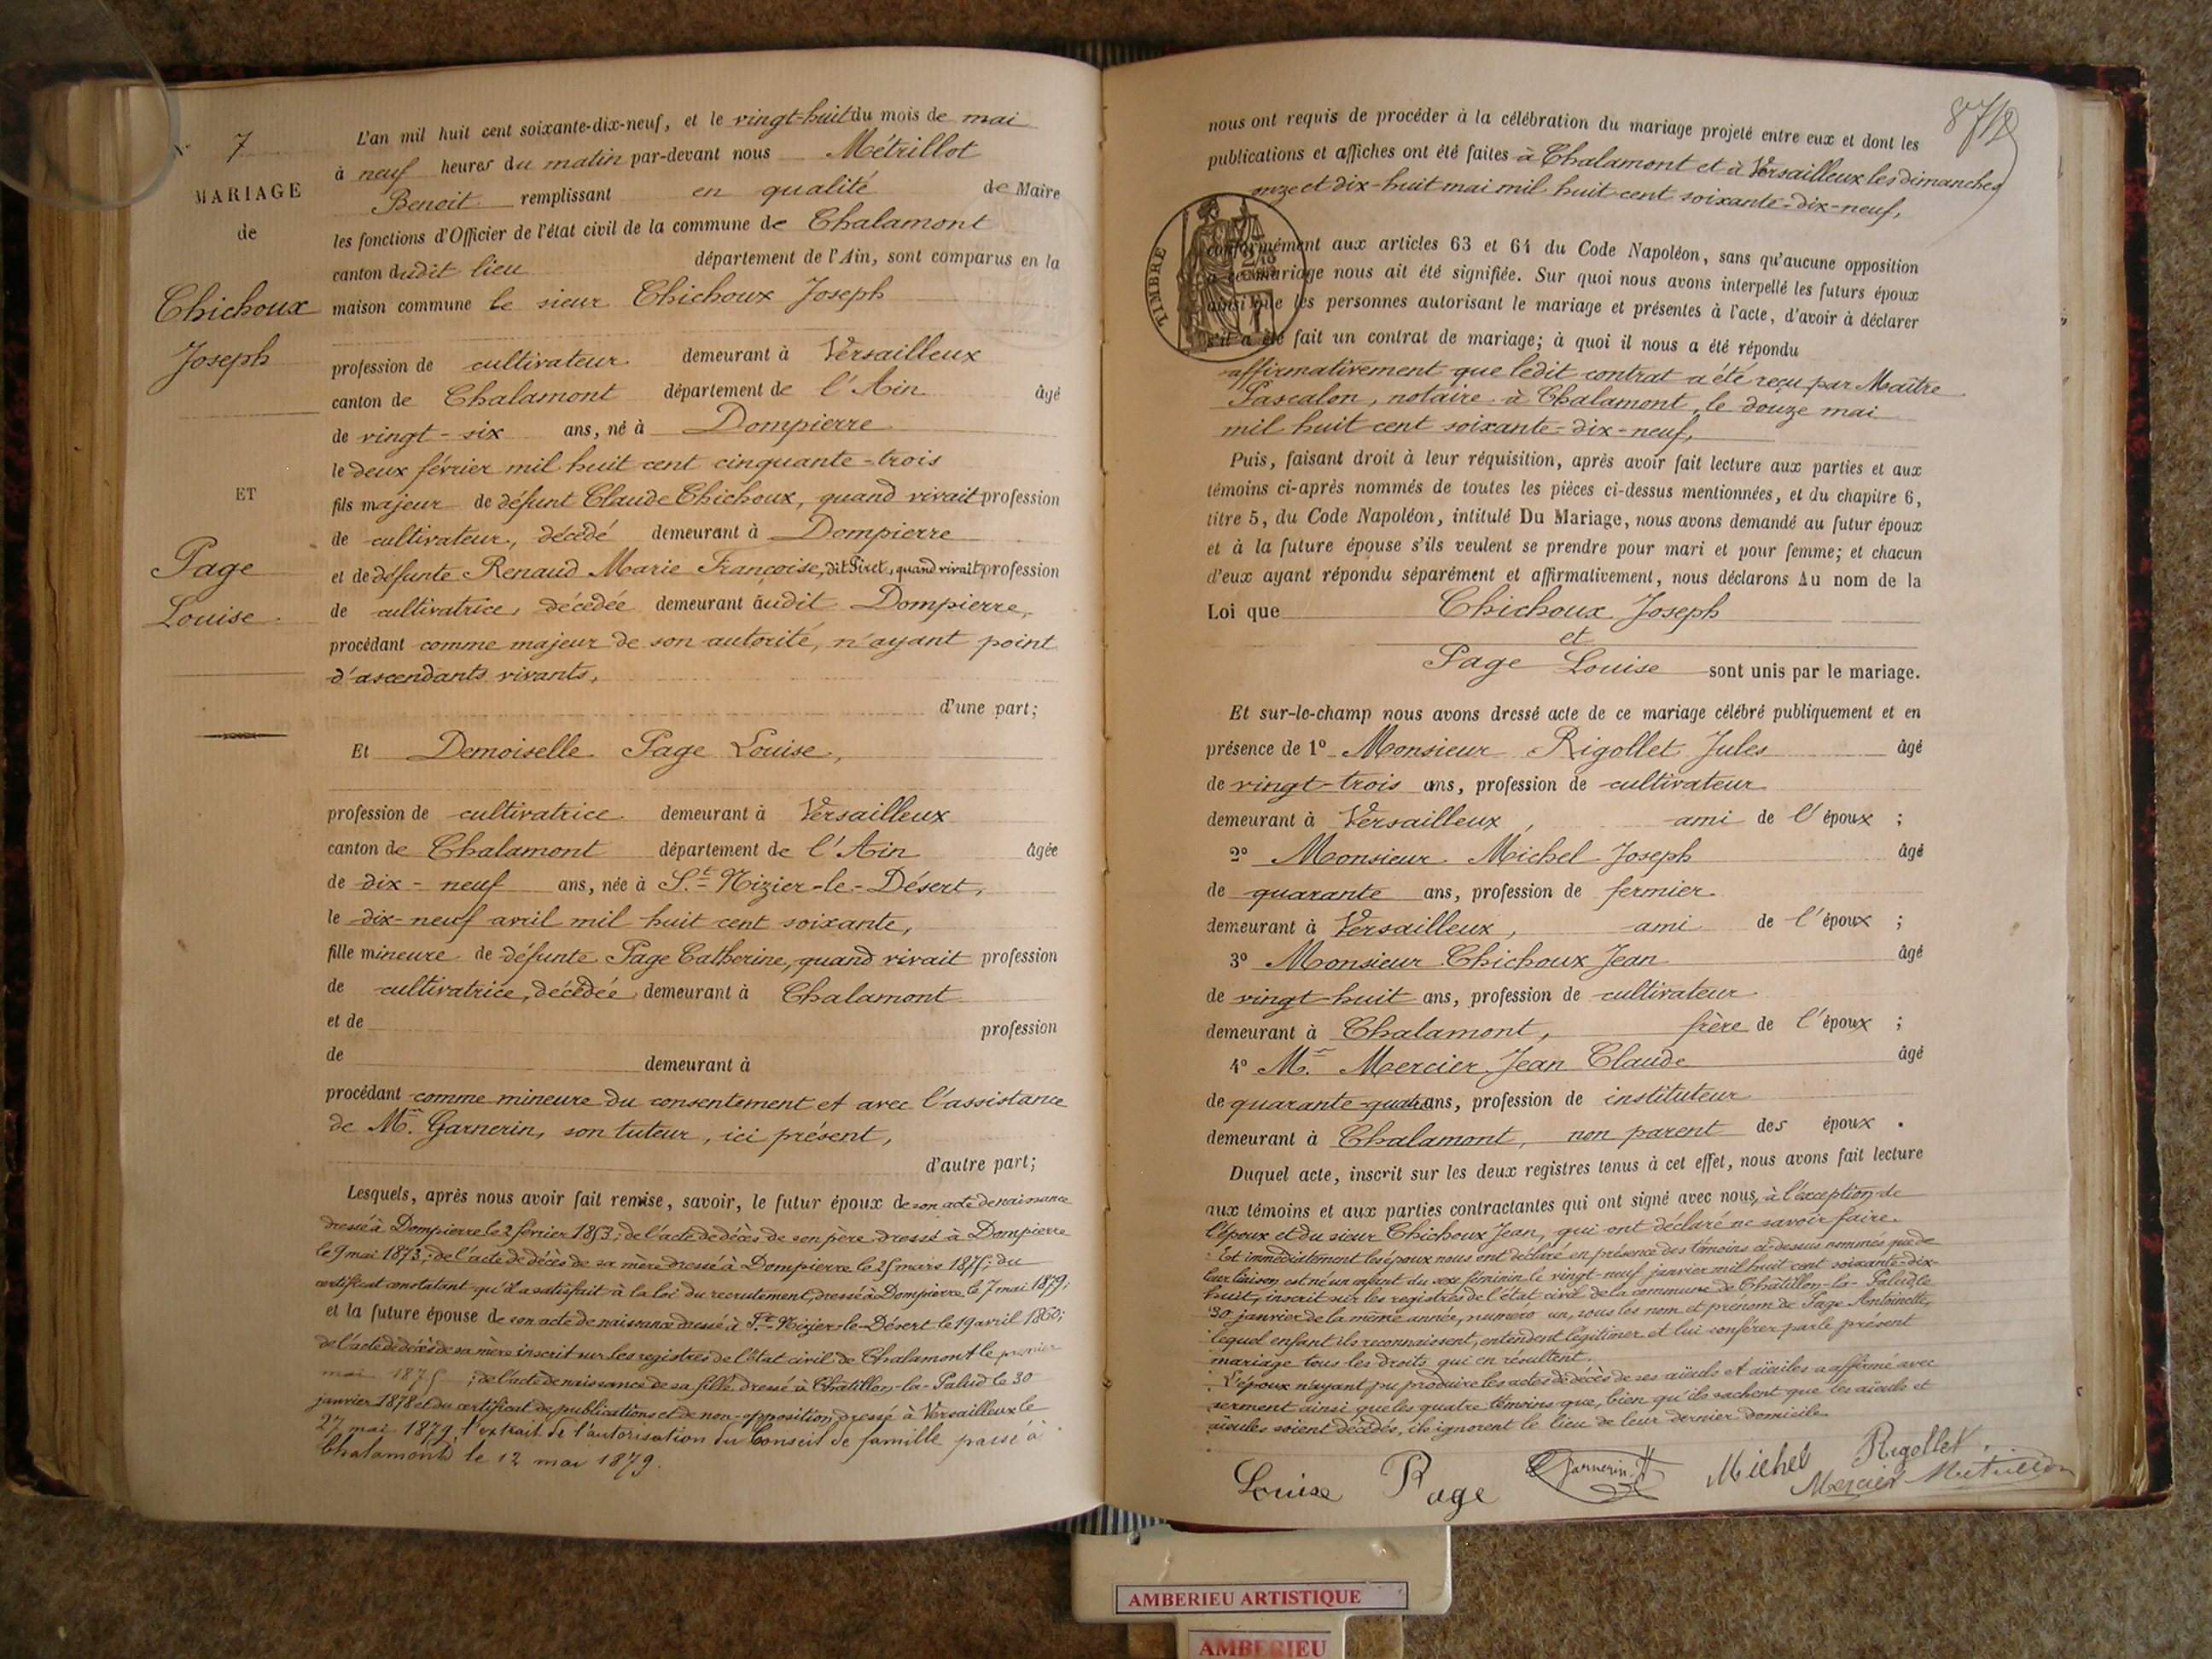 N° 7
MARIAGE
de
Chichoux
Joseph
ET
Page
Louise
L'an mil huit cent soixante-dix-neuf, et le vingt-huit du mois de mai
à neuf heures du matin par-devant nous Métrillot
Benoit remplissant en qualité de Maire
les fonctions d'Officier de l'état civil de la commune de Chalamont
canton dudit lieu département de l'Ain, sont comparus en la
maison commune le sieur Chichoux Joseph
profession de cultivateur demeurant à Versailleux
canton de Chalamont département de l'Ain âgé
de vingt-six ans, né à Dompierre
le deux février mil huit cent cinquante-trois
fils majeur de défunt Claude Chichoux, quand vivait profession
de cultivateur, décédé demeurant à Dompierre
et de défunte Renaud Marie Françoise, dit Piret, quand vivait profession
de cultivatrice, décédée demeurant audit Dompierre,
procédant comme majeur de son autorité, n'ayant point
d'ascendants vivants,
d'une part;
Et Demoiselle Page Louise,
profession de cultivatrice demeurant à Versailleux
canton de Chalamont département de l'Ain âgée
de dix-neuf ans, née à St Nizier-le-Désert,
le dix-neuf avril mil huit cent soixante,
fille mineure de défunte Page Catherine, quand vivait profession
de cultivatrice, décédée demeurant à Chalamont
et de profession
de demeurant à
procédant comme mineure du consentement et avec l'assistance
de Mr. Garnerin, son tuteur, ici présent,
d'autre part;
Lesquels, après nous avoir fait remise, savoir, le futur époux de son acte de naissance
dressé à Dompierre le 2 février 1853; de l'acte de décès de son père dressé à Dompierre
le 9 mai 1873; de l'acte de décès de sa mère dressé à Dompierre le 25 mars 1875; du
certificat constatant qu'il a satisfait à la loi du recrutement, dressé à Dompierre le 7 mai 1879;
et la future épouse de son acte de naissance dressé à St-Nizier-le-Désert le 19 avril 1860;
de l'acte de décès de sa mère inscrit sur les registres de l'état civil de Chalamont le premier
mai 1875; de l'acte de naissance de sa fille dressé à Châtillon-la-Palud le 30
janvier 1878 et du certificat de publications et de non-opposition dressé à Versailleux le
27 mai 1879, l'extrait de l'autorisation du Conseil de famille passé à
Chalamont le 12 mai 1879.
nous ont requis de procéder à la célébration du mariage projeté entre eux et dont les
publications et affiches ont été faites à Chalamont et à Versailleux les dimanches
onze et dix-huit mai mil huit cent soixante-dix-neuf,
TIMBRE
conformément aux articles 63 et 64 du Code Napoléon, sans qu'aucune opposition
à ce mariage nous ait été signifiée. Sur quoi nous avons interpellé les futurs époux
ainsi que les personnes autorisant le mariage et présentes à l'acte, d'avoir à déclarer
s'il a été fait un contrat de mariage; à quoi il nous a été répondu
affirmativement que ledit contrat a été reçu par Maître
Pascalon, notaire à Chalamont, le douze mai
mil huit cent soixante-dix-neuf,
Puis, faisant droit à leur réquisition, après avoir fait lecture aux parties et aux
témoins ci-après nommés de toutes les pièces ci-dessus mentionnées, et du chapitre 6,
titre 5, du Code Napoléon, intitulé Du Mariage, nous avons demandé au futur époux
et à la future épouse s'ils veulent se prendre pour mari et pour femme; et chacun
d'eux ayant répondu séparément et affirmativement, nous déclarons Au nom de la
Loi que Chichoux Joseph
et
Page Louise sont unis par le mariage.
Et sur-le-champ nous avons dressé acte de ce mariage célébré publiquement et en
présence de 1° Monsieur Rigollet Jules âgé
de vingt-trois ans, profession de cultivateur
demeurant à Versailleux, ami de l'époux ;
2° Monsieur Michel Joseph âgé
de quarante ans, profession de fermier
demeurant à Versailleux, ami de l'époux ;
3° Monsieur Chichoux Jean âgé
de vingt-huit ans, profession de cultivateur
demeurant à Chalamont, frère de l'époux ;
4° Mr. Mercier Jean Claude âgé
de quarante-quatre ans, profession de instituteur
demeurant à Chalamont, non parent des époux .
Duquel acte, inscrit sur les deux registres tenus à cet effet, nous avons fait lecture
aux témoins et aux parties contractantes qui ont signé avec nous, à l'exception de
l'époux et du sieur Chichoux Jean, qui ont déclaré ne savoir faire.
Et immédiatement les époux nous ont déclaré en présence des témoins ci-dessus nommés que de
leur liaison est né un enfant du sexe féminin le vingt-neuf janvier mil huit cent soixante-dix-
huit, inscrit sur les registres de l'état civil de la commune de Châtillon-la-Palud le
30 janvier de la même année, numéro un, sous les nom et prénom de Page Antoinette,
lequel enfant ils reconnaissent, entendent légitimer et lui conférer par le présent
mariage tous les droits qui en résultent.
L'époux n'ayant pu produire les actes de décès de ses aïeuls et aïeules a affirmé avec
serment ainsi que les quatre témoins que, bien qu'ils sachent que les aïeuls et
aïeules soient décédés, ils ignorent le lieu de leur dernier domicile
Louise Page Garnerin Michel Rigollet
Mercier Métrillot
AMBERIEU ARTISTIQUE
AMBERIEU